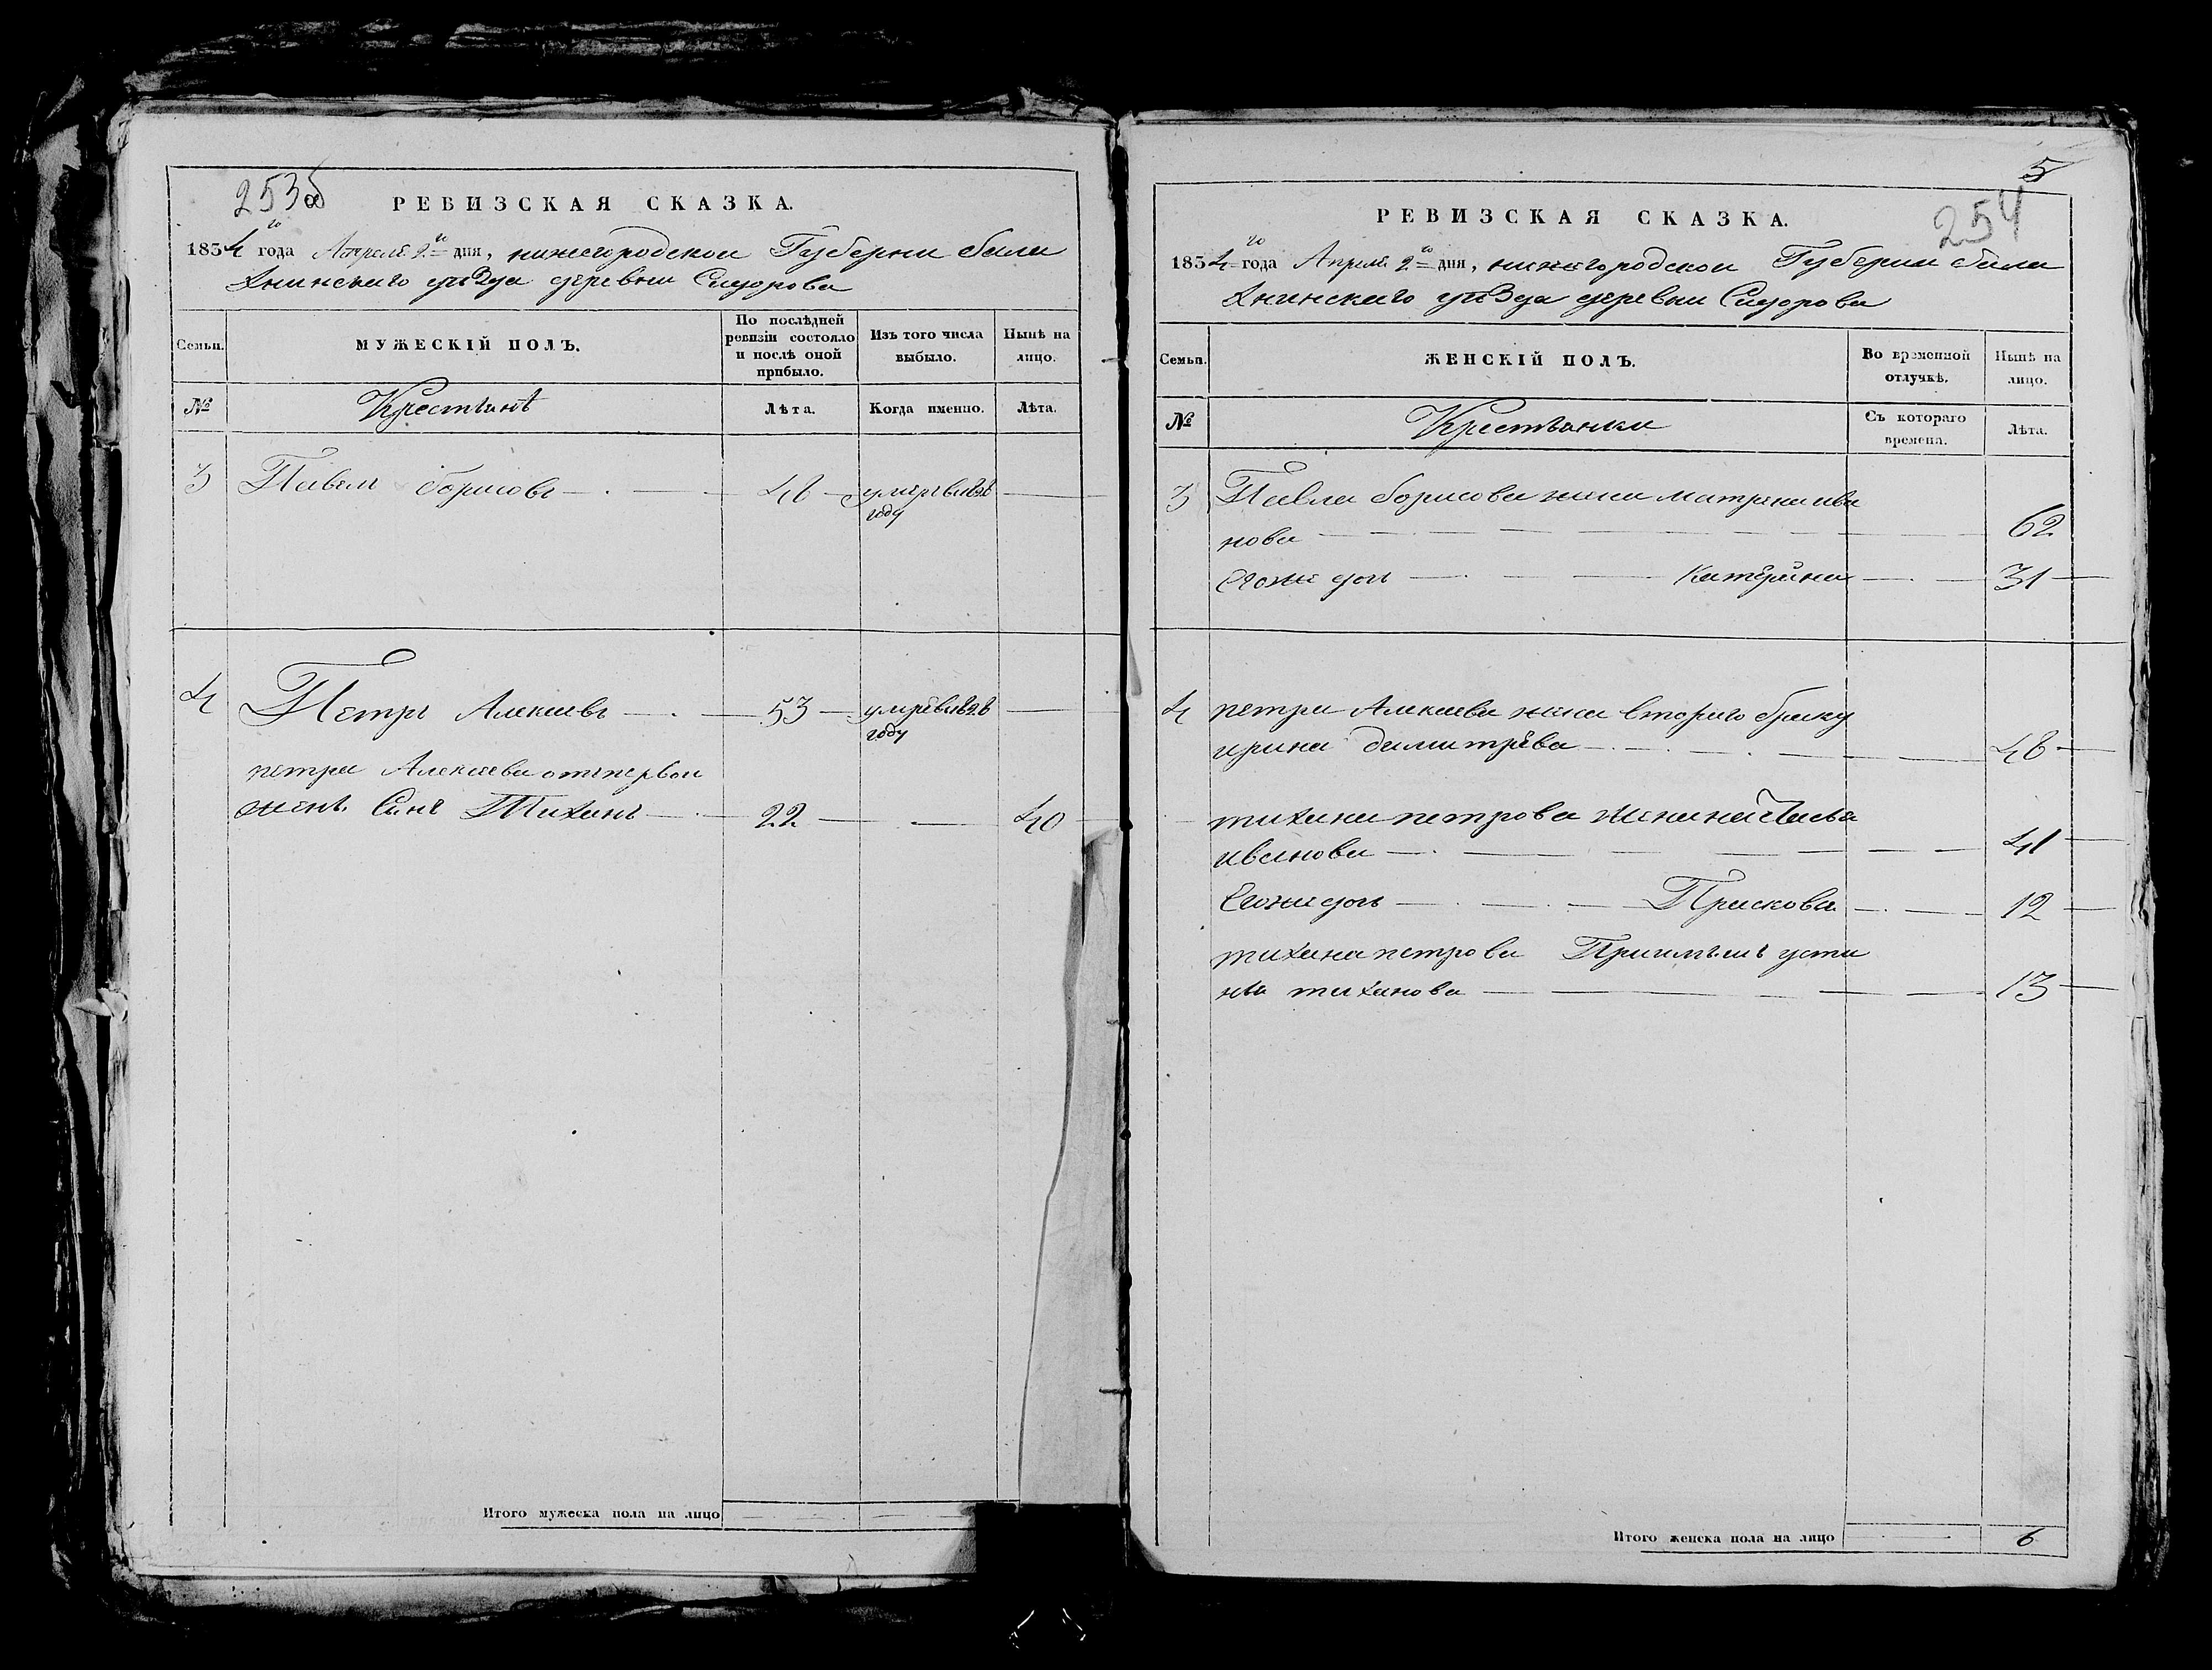 253об
РЕВИЗСКАЯ СКАЗКА.
1834го года Апреля 2го дня, нижегородской Губерни бала
хнинскаго уъзда деревни Сидорова
Семьи.
МУЖЕСКІЙ ПОЛЪ.
По послѣдней ревизіи состояло и послѣ оной прибыло.
Изъ того числа выбыло.
Нынѣ на лицо.
№
Крестьянъ
Лѣта.
Когда именно.
Лѣта.
3 Павелъ борисовъ 48
году
4 Петръ Алексеевъ 53
году
петра Алексеева отпервои
жены Сынъ Тиханъ 22 40
Итого мужеска пола на лицо
5
254
РЕВИЗСКАЯ СКАЗКА.
1834го года Апреля 2го дня, нижегородскои Губерни бала
хнинскаго уъзда деревни Сидорова
Семьи.
ЖЕНСКІЙ ПОЛЪ.
Во временной отлучкѣ.
Нынѣ на лицо.
№
Крестьянки
Съ котораго времена.
Лѣта.
3 Павла борисова жена матрена ива
нова 62
Егоже дочь Катерина 31
4 петра Алексеева жена втораго браку
ирина димитрева 48
тихана петрова жена
иванова 41
Егоже дочь Прасковя 12
тихана петрова Приимышъ усти
нья тиханова 13
Итого женска пола на лицо 6